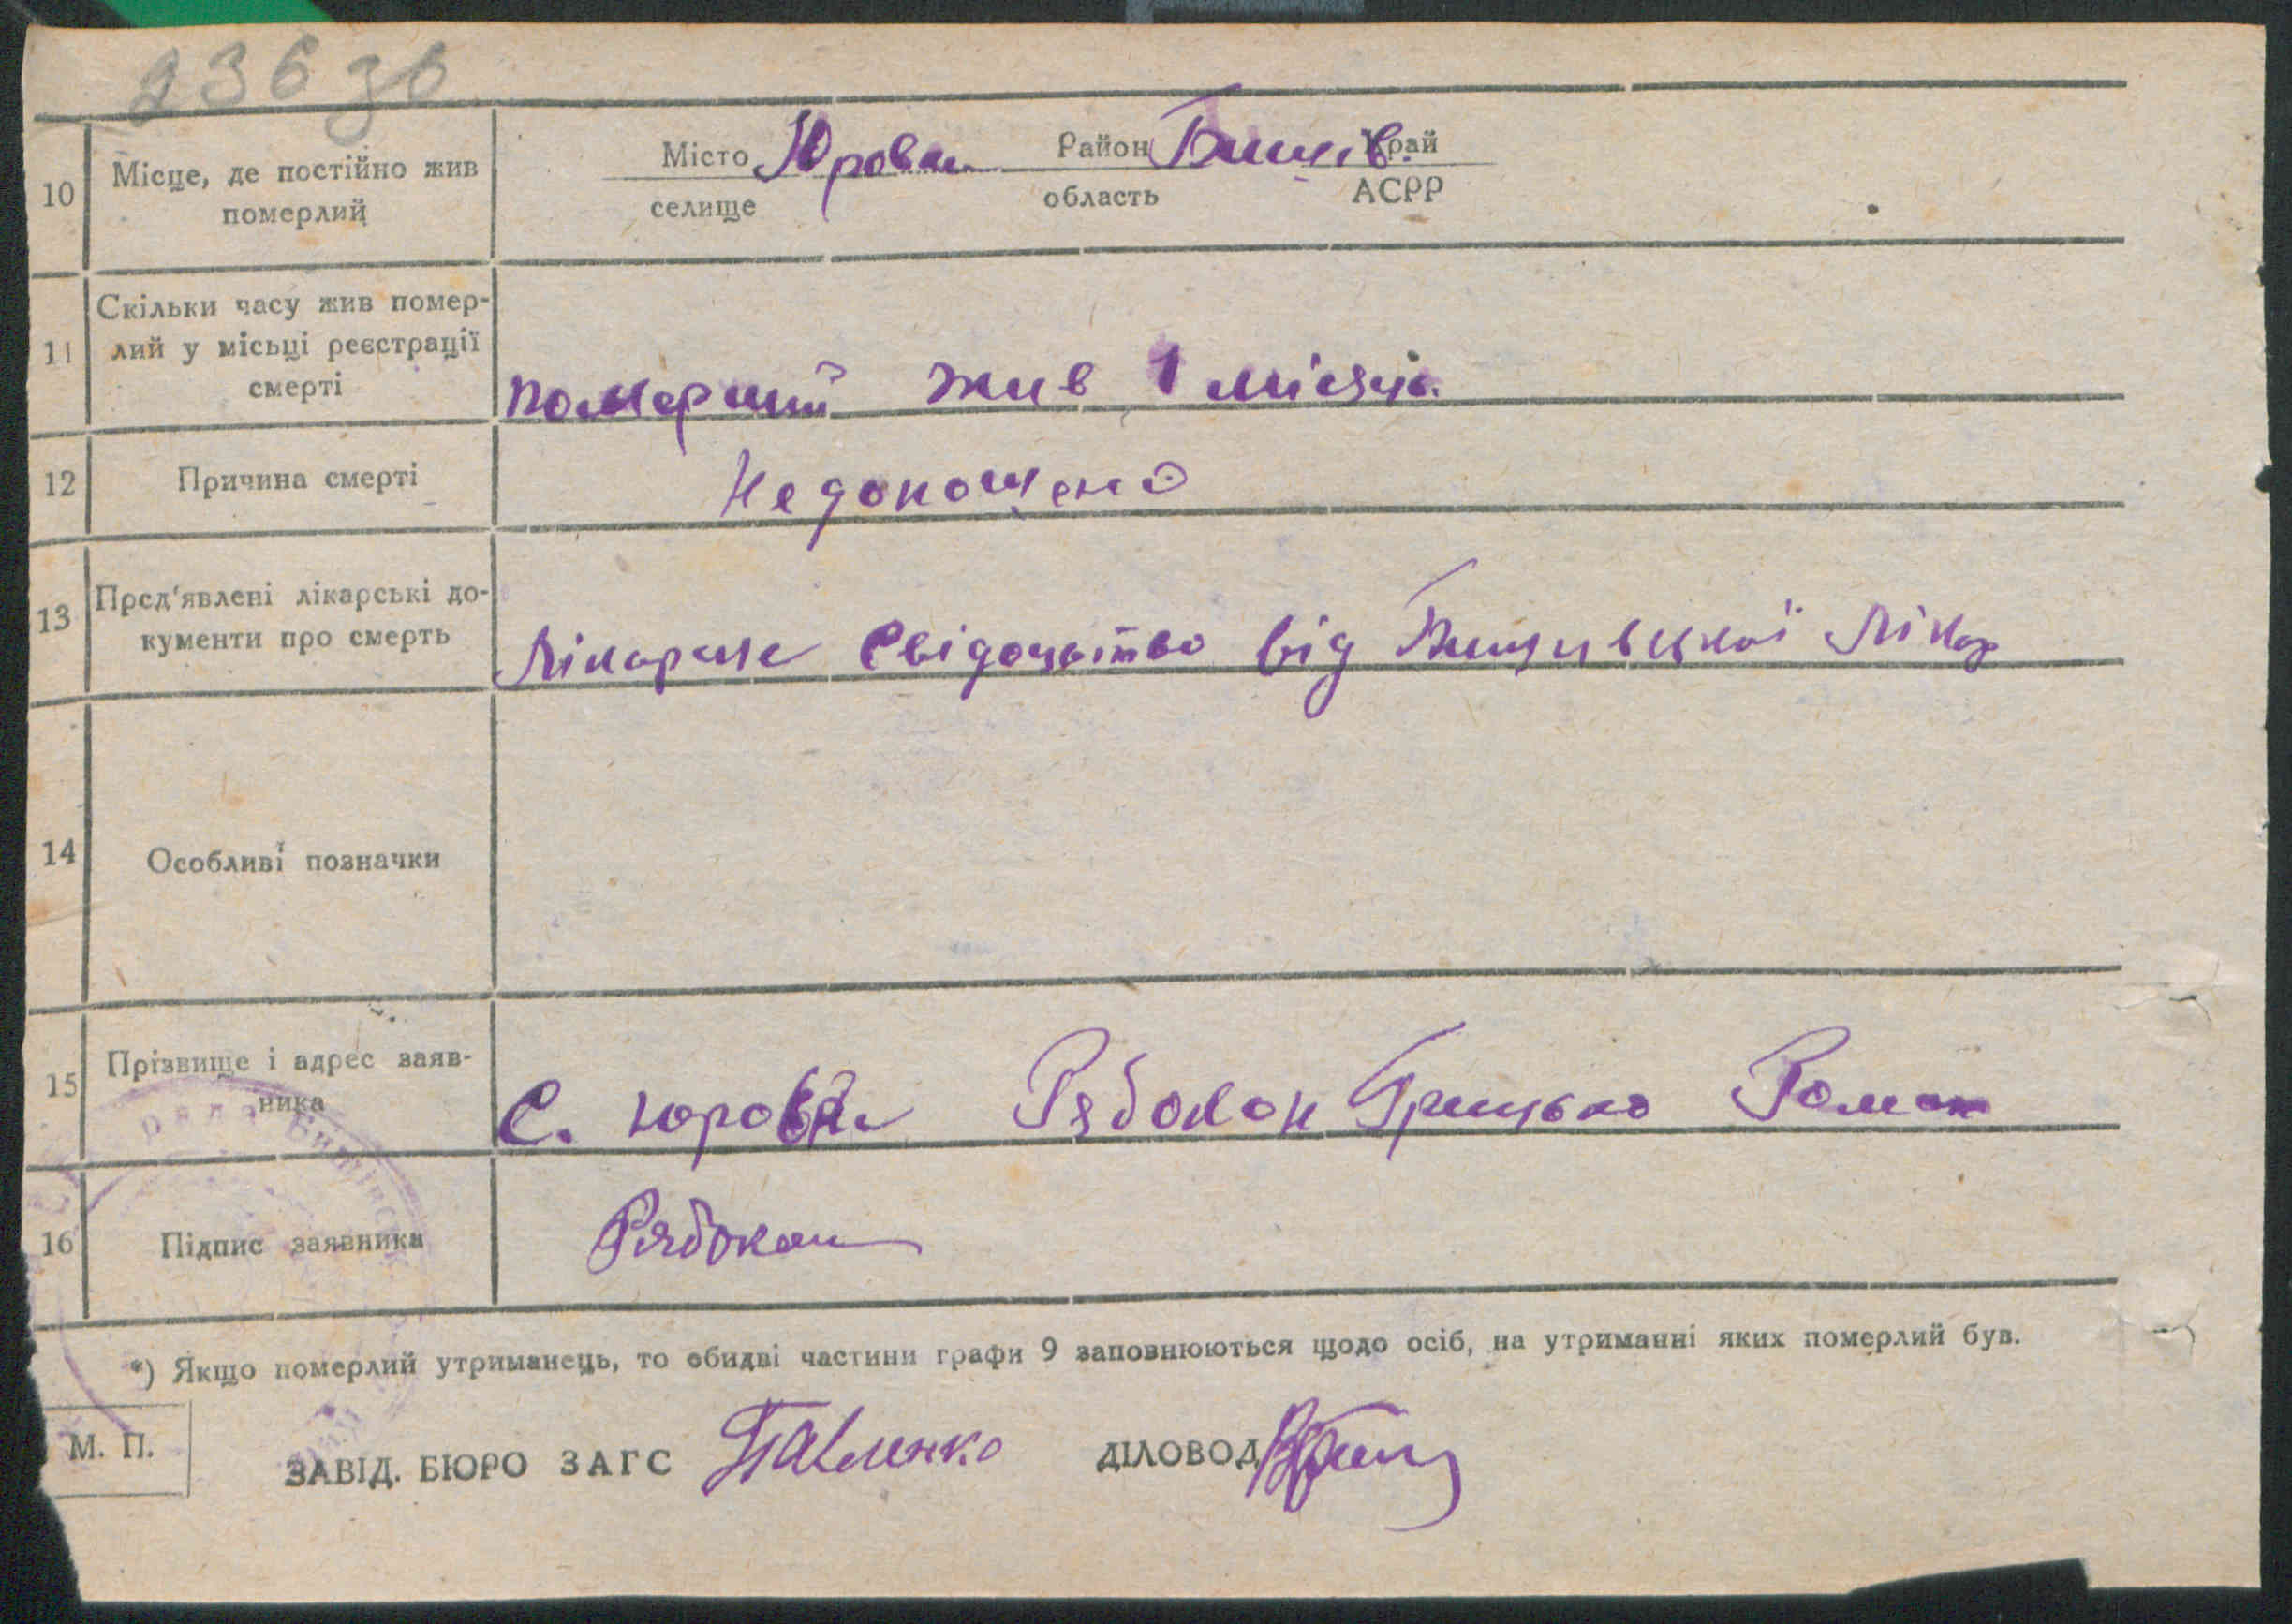 236 зв
10 Місце, де постійно жив померлий
Місто Юровка Район Бишів. Край
селище область АСРР
11 Скільки часу жив помер-
лий у місьці реєстрації
смерті
померший жив 1 місяць.
12 Причина смерті Недоношено
13 Пред'явлені лікарські до-
кументи про смерть
Лікарське свідоцьтво від Бишивської лікар
14 Особливі позначки
15 Прізвище і адрес заяв-
ника
С. Юровка Рябокон Грицько Роман
16 Підпис заявника Рябокон
*) Якщо померлий утриманець, то обидві частини графи 9 заповнюються щодо осіб, на утриманні яких померлий був.
М. П.
ЗАВІД. БЮРО ЗАГС Павленко ДІЛОВОД